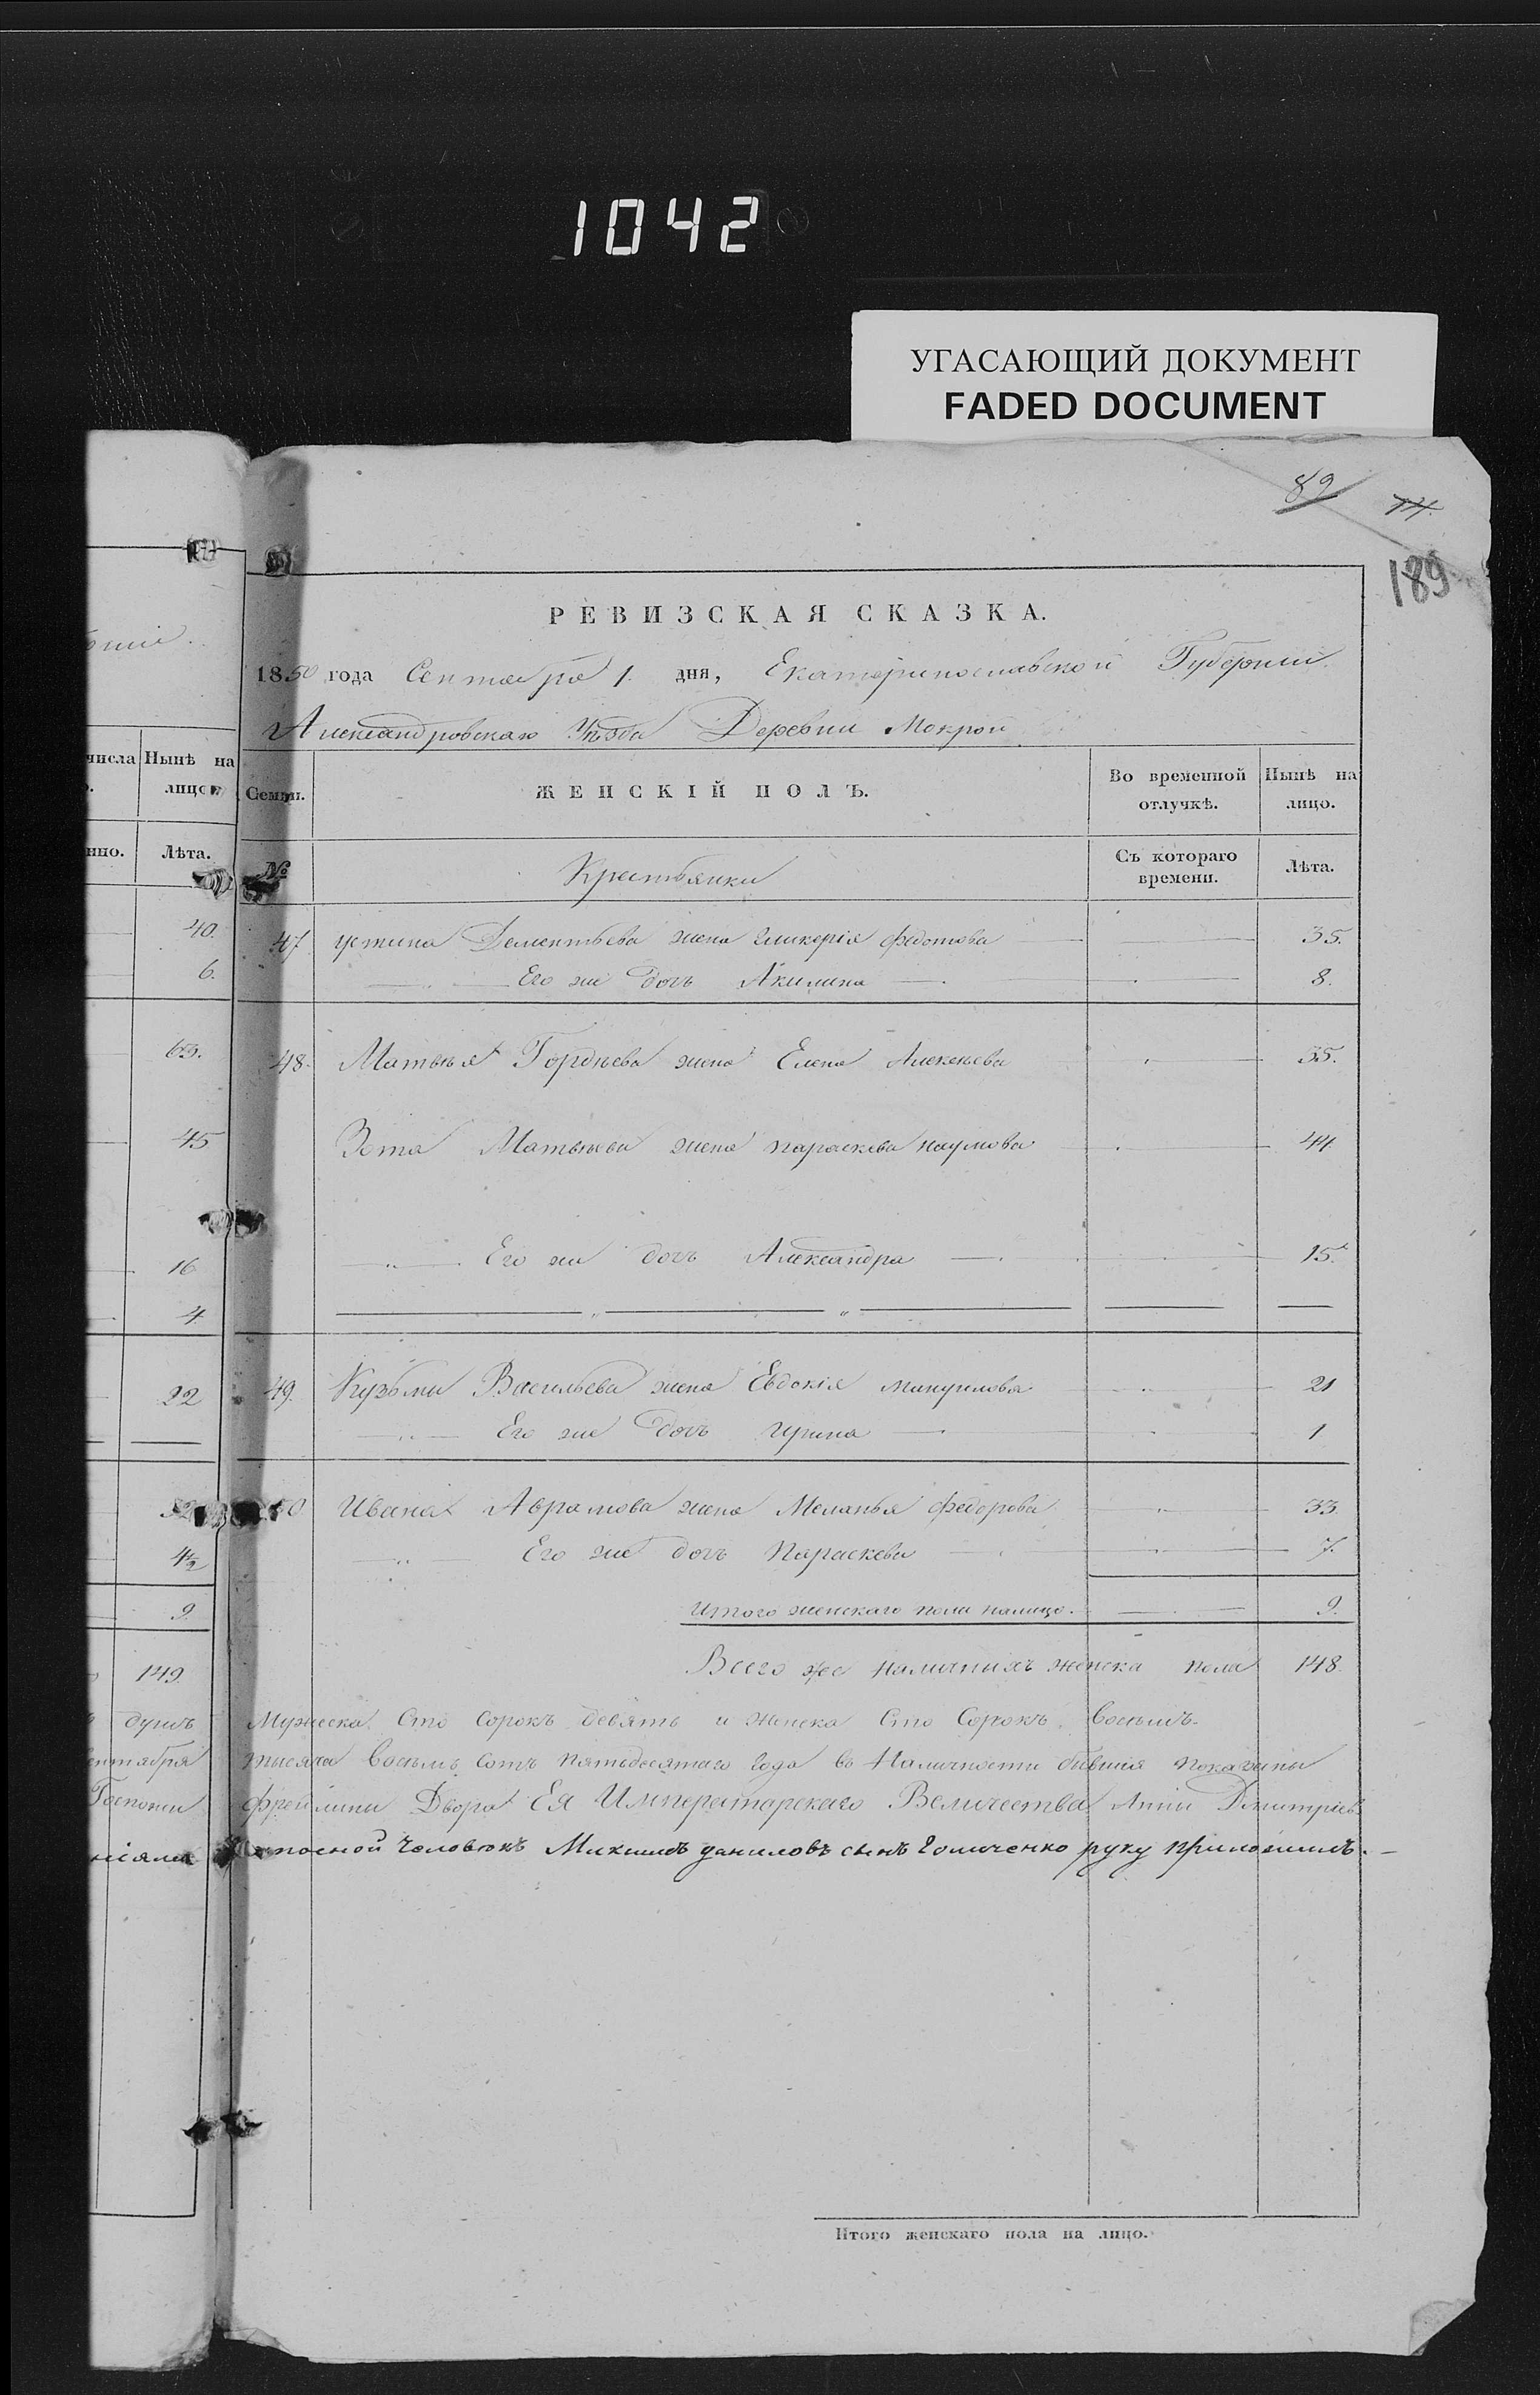 1042
УГАСАЮЩИЙ ДОКУМЕНТ
FADED DOCUMENT
89 74.
189
РЕВИЗСКАЯ СКАЗКА.
1850 года Сентября 1. дня, Екатеринославской Губерніи
Александровскаго Уѣзда Деревни Мокрой
числа Нынѣ на лицо
нно. Лѣта.
40.
6.
63.
45
16
4
22
4½
9.
149.
душъ
ентября
Госпожи
Семьи. ЖЕНСКІЙ ПОЛЪ. Во временной отлучкѣ. Нынѣ на лицо.
№ Крестьянки Съ котораго времени. Лѣта.
47 Устина Дементьева жена Гликерія Федотова 35.
Его же дочь Акилина 8.
48. Матвѣя Гордѣева жена Елена Алексѣева 55.
Зота Матвѣева жена Параскева Наумова 44
Его же дочь Александра 15.
49. Кузьмы Васильева жена Евдокія Мануилова 21
Его же дочь Ирина 1
50 Ивана Аврамова жена Меланья Федорова 33.
Его же дочь Параскева 7.
Итого женскаго пола налицо. 9.
Всего же наличныхъ женска пола 148.
Мужеска Сто Сорокъ девять и женска Сто Сорокъ восемь
тысяча восемь сотъ пятьдесятаго года въ Наличности бывшія показаны
Фрейлины Двора Ея Императорскаго Величества Анны Дмитріев
человѣкъ даниловъ сынъ руку приложилъ.
Итого женскаго пола на лицо.